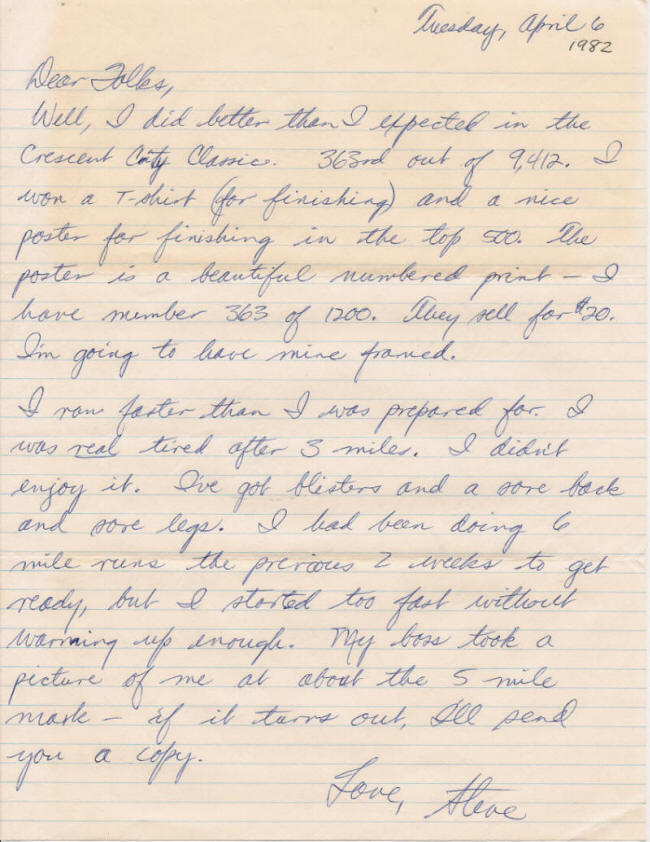 Tuesday, April 6
1982
Dear Folks,
Well, I did better than I expected in the
Crescent City Classic. 363rd out of 9,412. I
won a T-shirt (for finishing) and a nice
poster for finishing in the top 500. The
poster is a beautiful numbered print – I
have number 363 of 1200. They sell for $20.
I'm going to have mine framed.
I ran faster than I was prepared for. I
was real tired after 3 miles. I didn't
enjoy it. I've got blisters and a sore back
and sore legs. I had been doing 6
mile runs the previous 2 weeks to get
ready, but I started too fast without
warming up enough. My boss took a
picture of me at about the 5 mile
mark – if it turns out, I'll send
you a copy.
Love, Steve